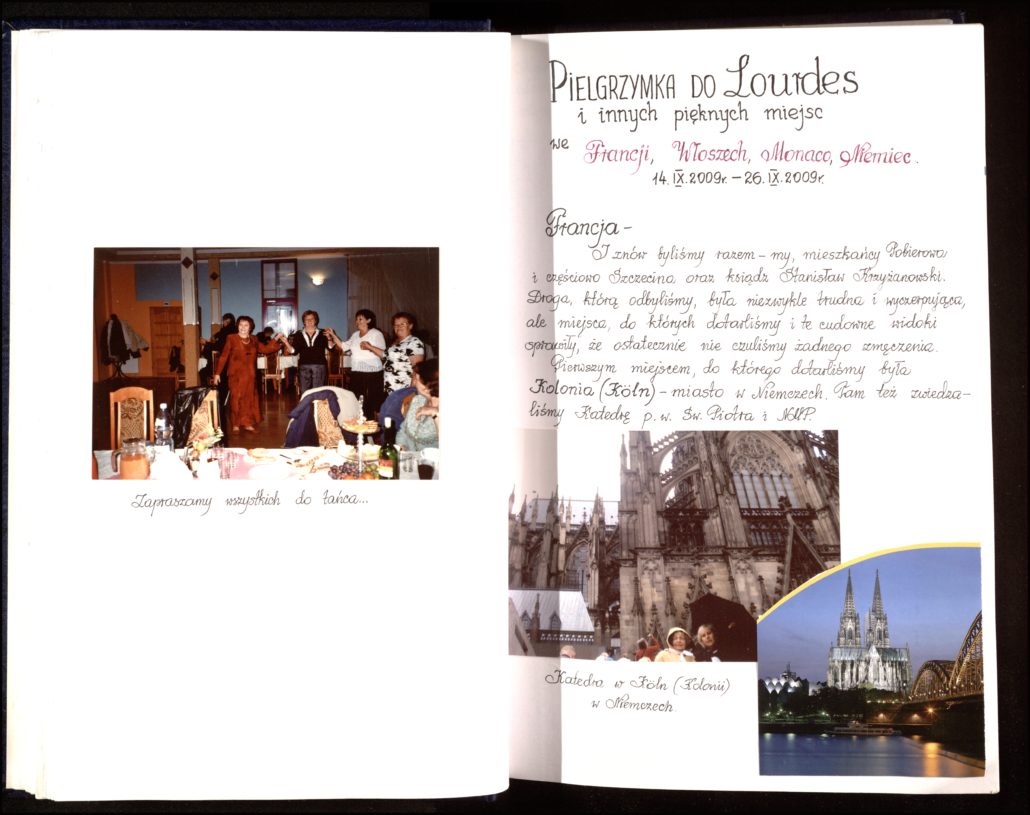 Zapraszamy wszystkich do tańca...
PIELGRZYMKA DO Lourdes
i innych pięknych miejsc
we Francji, Włoszech, Monaco, Niemiec.
14.IX.2009r. – 26.IX.2009r.
Francja –
I znów byliśmy razem – my, mieszkańcy Pobierowa
i częściowo Szczecina, oraz ksiądz Stanisław Krzyżanowski.
Droga, którą odbyliśmy, była niezwykle trudna i wyczerpująca,
ale miejsca, do których dotarliśmy i te cudowne widoki
sprawiły, że ostatecznie nie czuliśmy żadnego zmęczenia.
Pierwszym miejscem, do którego dotarliśmy była
Kolonia (Köln) – miasto w Niemczech. Tam też zwiedza–
liśmy Katedrę p.w. Św. Piotra i NMP.
Katedra w Köln (Kolonii)
w Niemczech